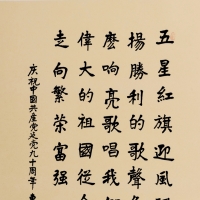 五星紅旗迎風
揚勝利的歌聲
麽响亮歌唱我
偉大的祖國從今
走向繁荣富强
庆祝中國共産党建党九十周年